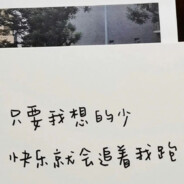 只要我想的少
快乐就会追着我跑